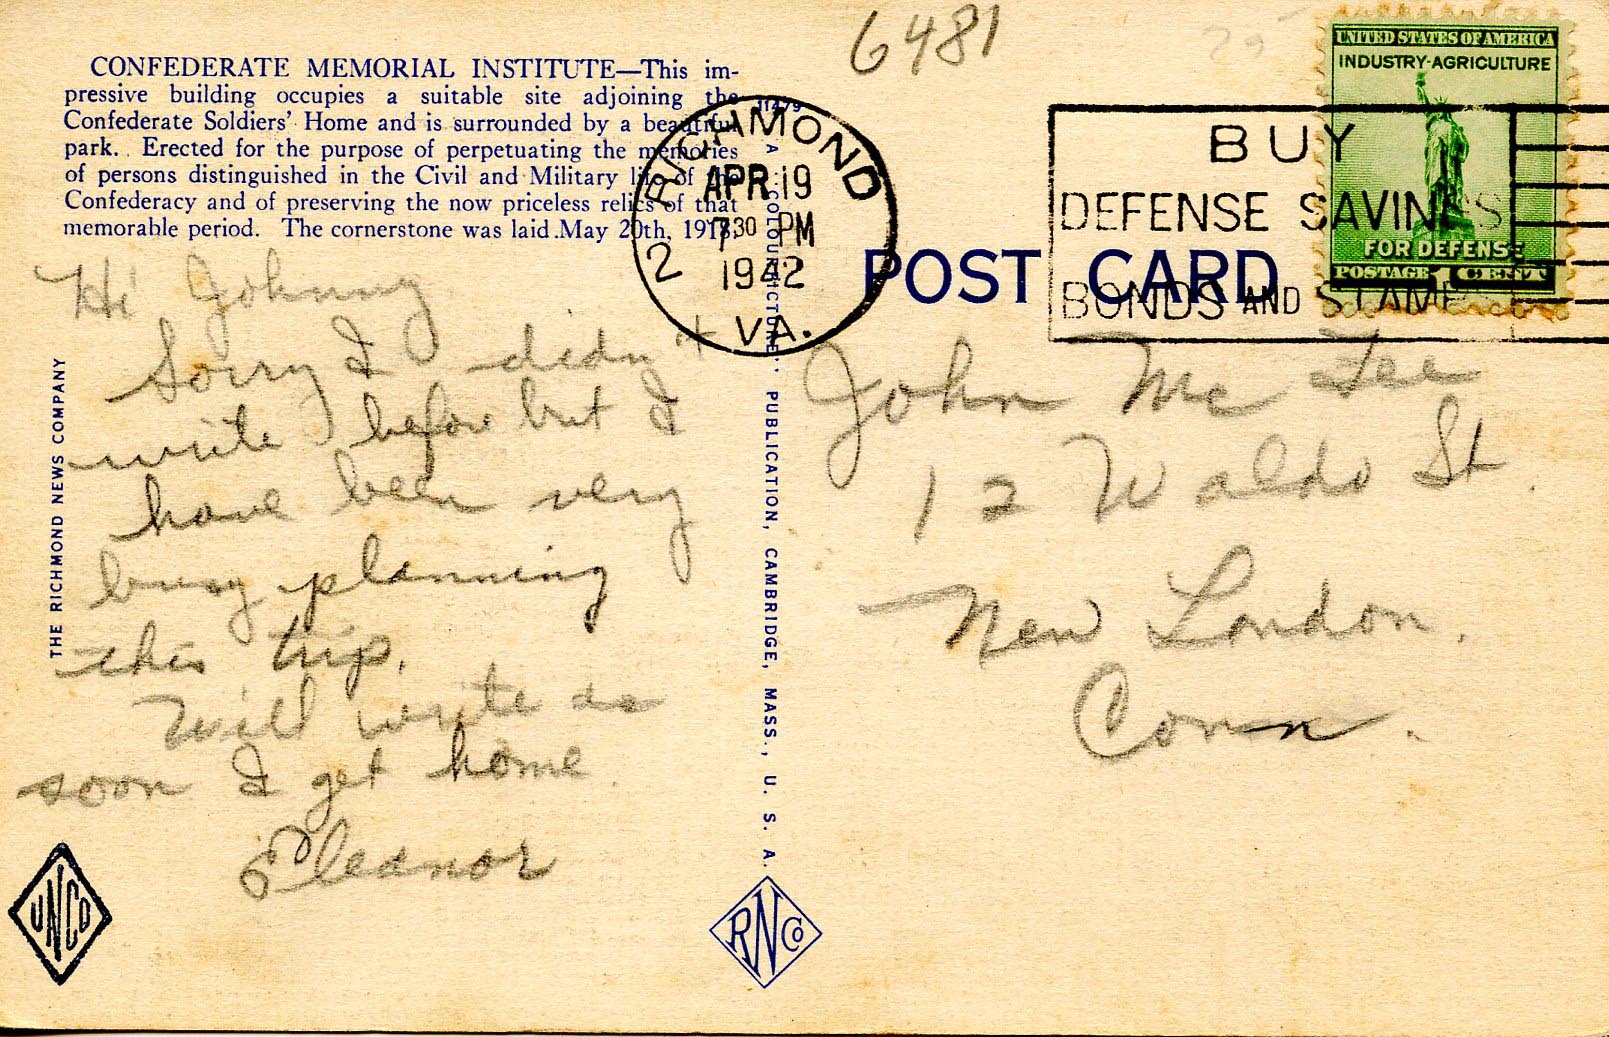 6481
CONFEDERATE MEMORIAL INSTITUTE—This im-
pressive building occupies a suitable site adjoining the
Confederate Soldiers' Home and is surrounded by a beautiful
park. Erected for the purpose of perpetuating the memories
of persons distinguished in the Civil and Military life of the
Confederacy and of preserving the now priceless relics of that
memorable period. The cornerstone was laid May 20th, 1918.
Hi Johnny
Sorry I didn't
write before but I
have been very
busy planning
this trip.
Will write as
soon I get home.
Eleanor
THE RICHMOND NEWS COMPANY
UNCO
11479
A "COLOURPICTURE" PUBLICATION, CAMBRIDGE, MASS., U. S. A.
RNCo
RICHMOND
APR 19
7 30 PM
1942
2 VA.
POST CARD
BUY
DEFENSE SAVINGS
BONDS AND STAMPS
UNITED STATES OF AMERICA
INDUSTRY-AGRICULTURE
FOR DEFENSE
POSTAGE 1 CENT
John McFee
12 Waldo St.
New London.
Conn.